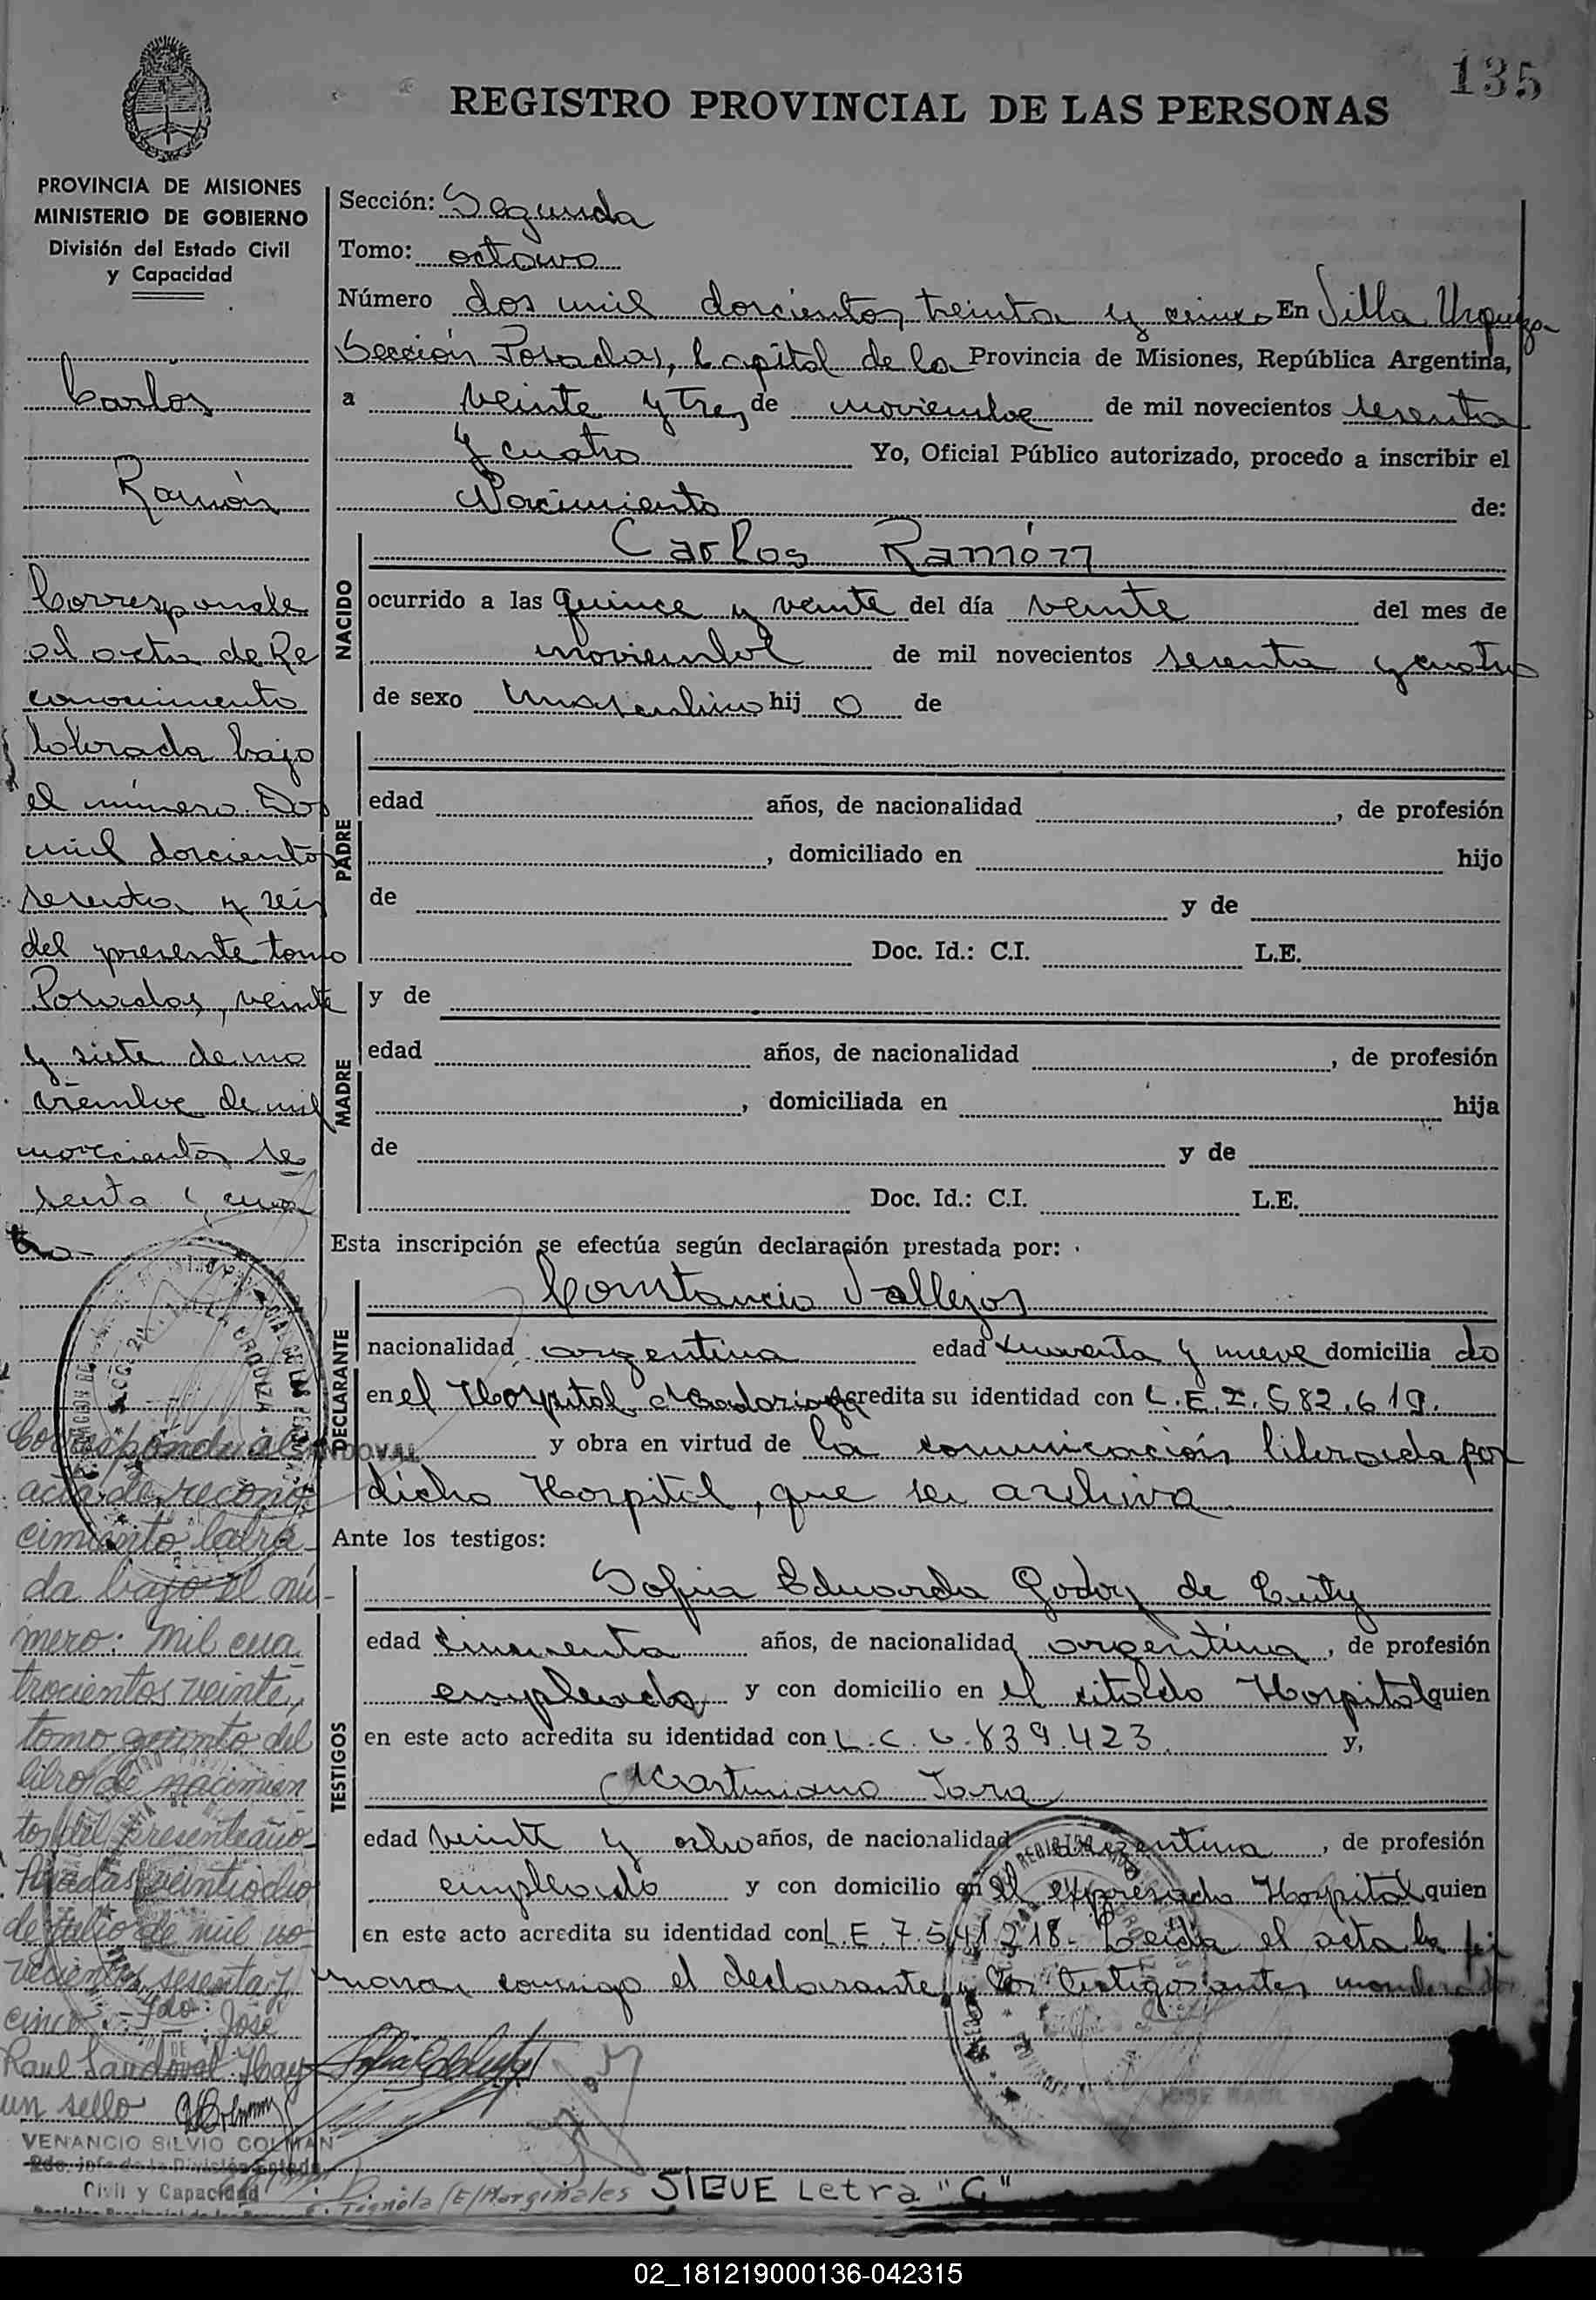 135
REGISTRO PROVINCIAL DE LAS PERSONAS
PROVINCIA DE MISIONES
MINISTERIO DE GOBIERNO
División del Estado Civil
y Capacidad
Carlos
Ramón
Corresponde
al acta de Re
conocimiento
labrada bajo
el número Dos
mil doscientos
sesenta y seis
del presente tomo
Posadas, veinte
y siete de no
viembre de mil
novecientos se
senta y cua
tro
Corresponde al
acta de recono
cimiento labra
da bajo el nú-
mero: mil cua
trocientos veinte,
tomo quinto del
libro de nacimien
tos del presente año
Posadas veintiocho
de julio de mil no-
vecientos sesenta y
cinco.- Fdo: José
Raul Sandoval. Hay
un sello
VENANCIO SILVIO COLMAN
2do. Jefe de la División Estado
Civil y Capacidad
Sección: Segunda
Tomo: octavo
Número dos mil doscientos treinta y cinco En Villa Urquiza
Sección Posadas, Capital de la Provincia de Misiones, República Argentina,
a veinte y tres de noviembre de mil novecientos sesenta
y cuatro Yo, Oficial Público autorizado, procedo a inscribir el
Nacimiento de:
Carlos Ramón
NACIDO
ocurrido a las quince y veinte del día veinte del mes de
noviembre de mil novecientos sesenta y cuatro
de sexo masculino hij o de
PADRE
edad años, de nacionalidad , de profesión
, domiciliado en hijo
de y de
Doc. Id.: C.I. L.E.
y de
MADRE
edad años, de nacionalidad , de profesión
, domiciliada en hija
de y de
Doc. Id.: C.I. L.E.
Esta inscripción se efectúa según declaración prestada por:
DECLARANTE
Constancio Vallejos
nacionalidad argentina edad cuarenta y nueve domicilia do
en el Hospital Madariaga acredita su identidad con L.E. 2.582.619.
y obra en virtud de la comunicación librada por
dicho Hospital, que se archiva
Ante los testigos:
TESTIGOS
Sofia Eduarda Godoy de
edad cincuenta años, de nacionalidad argentina , de profesión
empleada y con domicilio en el citado Hospital quien
en este acto acredita su identidad con L.C. 6.839.423 y,
Martiniano Jara
edad veinte y ocho años, de nacionalidad argentina , de profesión
empleado y con domicilio en el expresado Hospital quien
en este acto acredita su identidad con L.E. 7.541.218- Leida el acta la fir
maron conmigo el declarante y los testigos antes nombrados
SIGUE Letra "C"
02_181219000136-042315